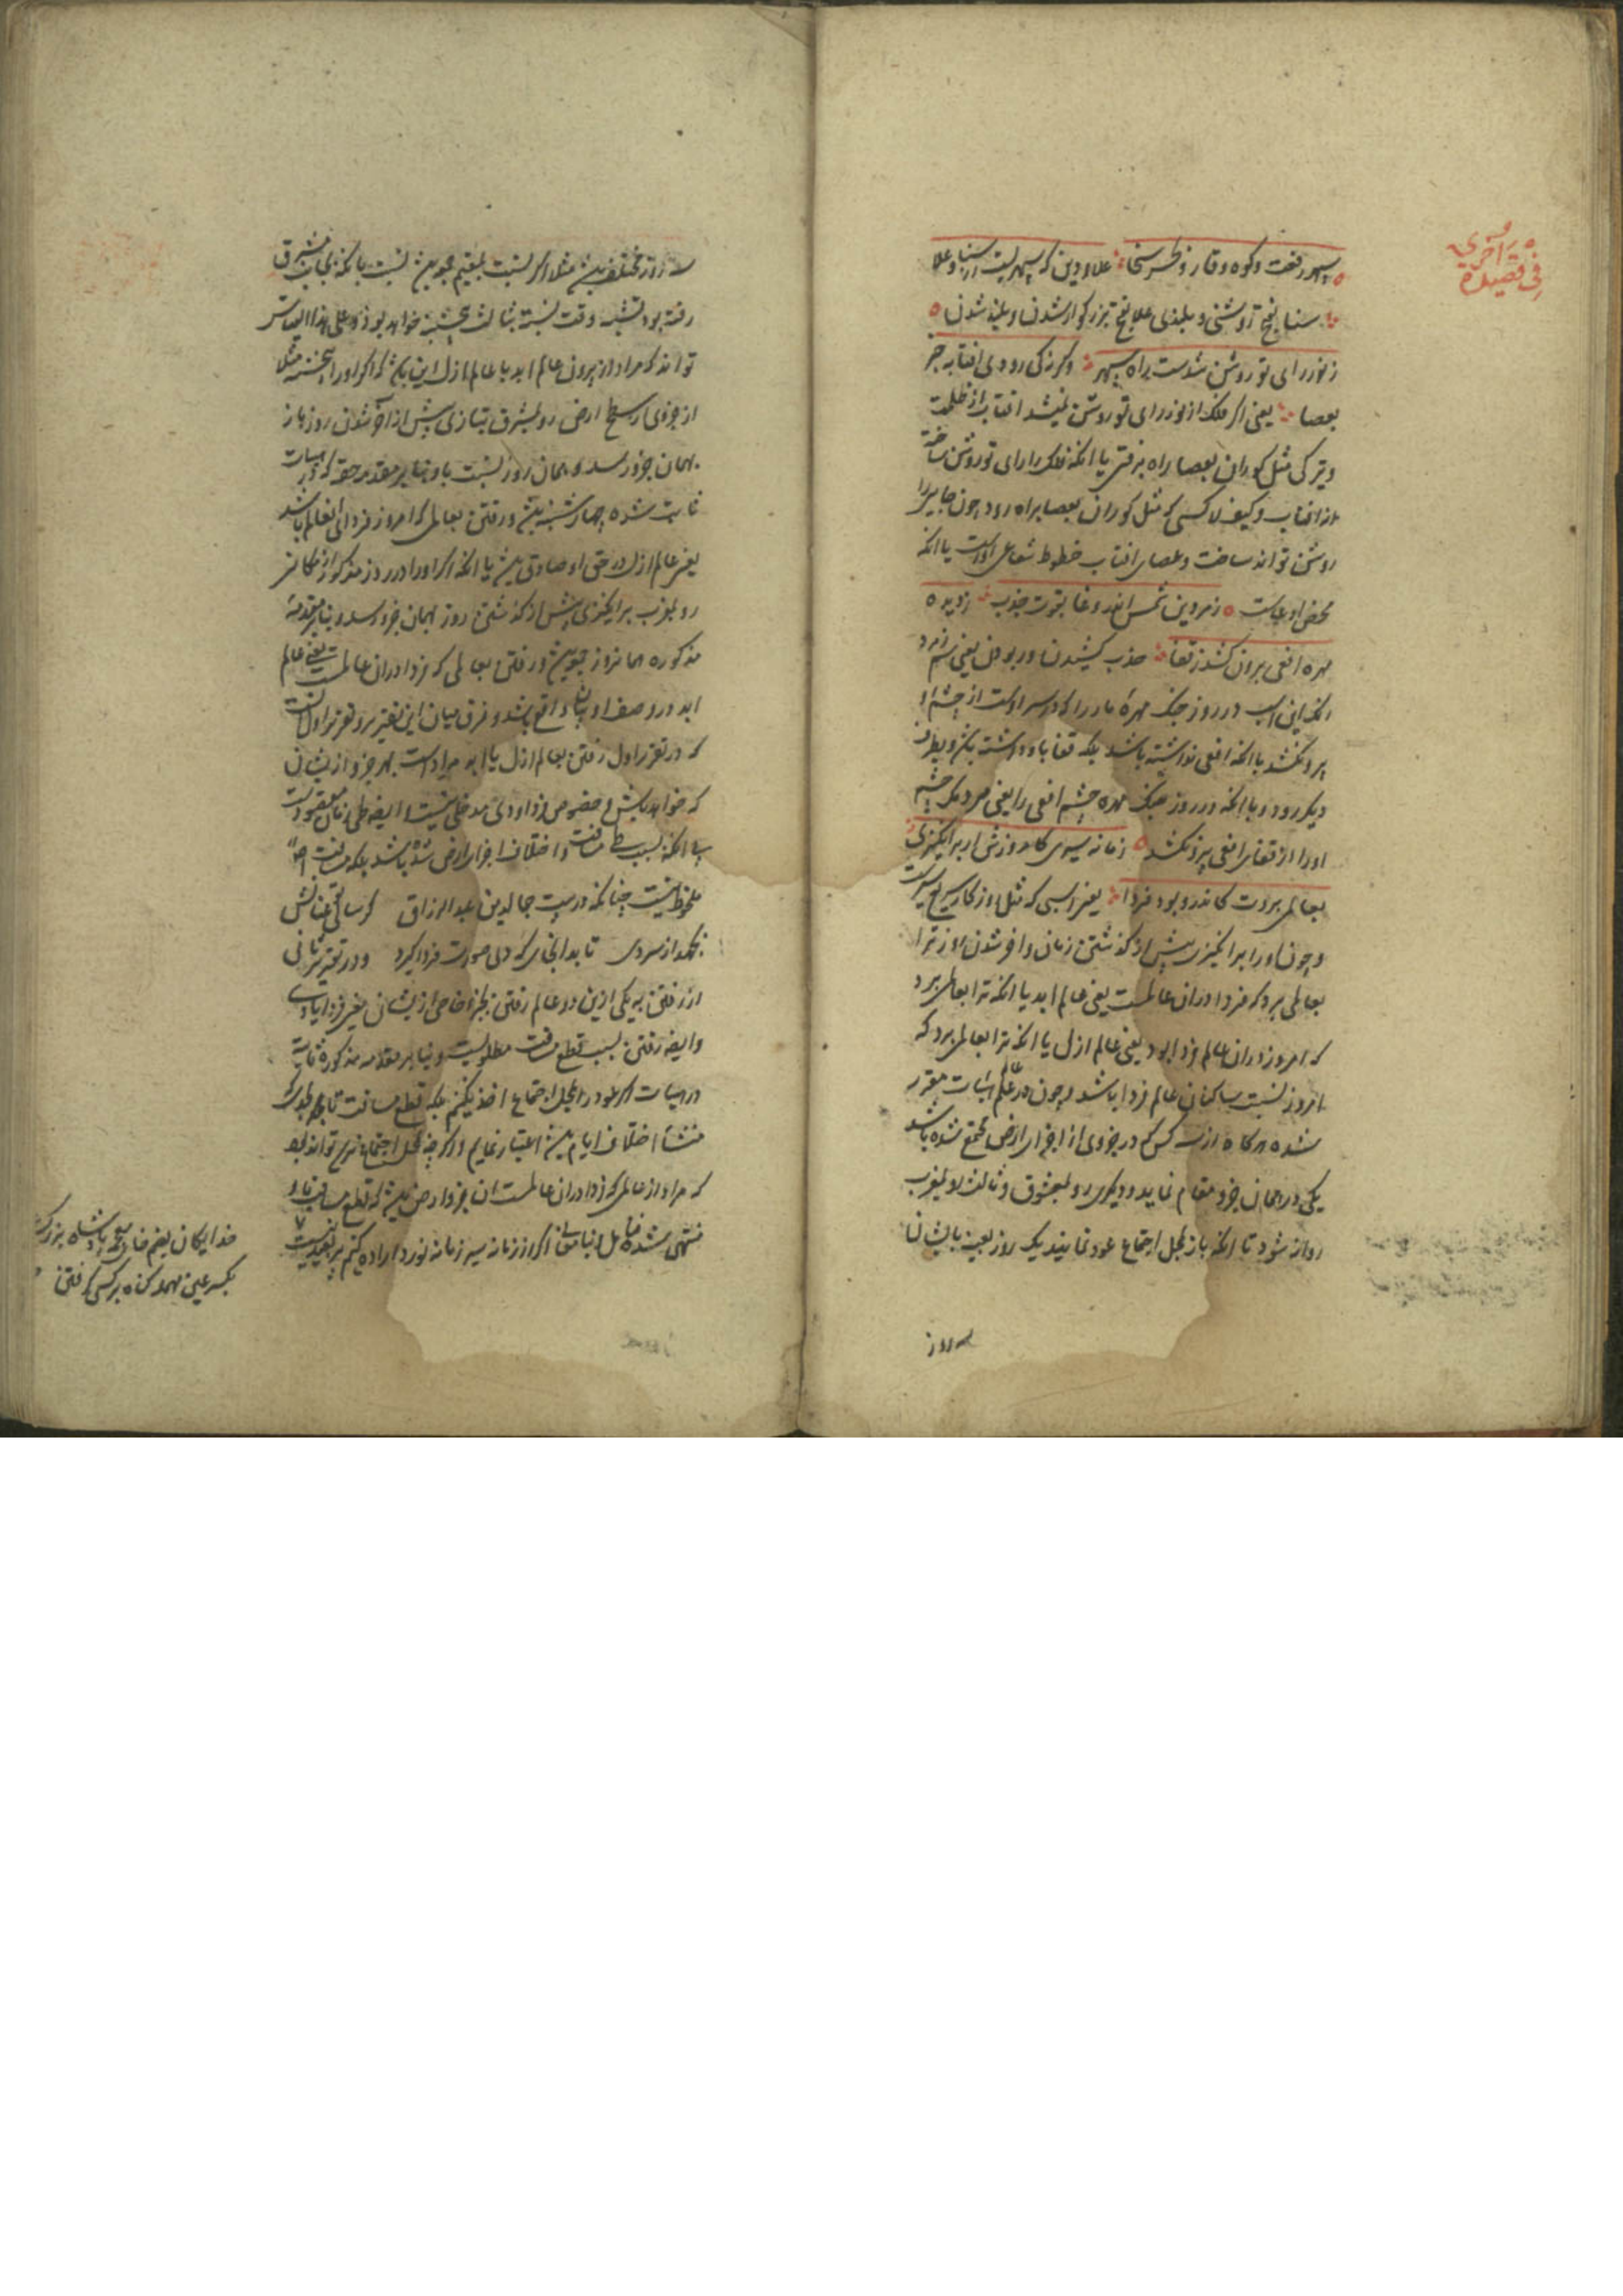 فی قصیدة اخری
سپهر رفعت و کوه وقار و بحر سخا علاء دین که سپهریست از سنا و علا
سنا بفتح روشنی و بلندی علا بفتح بزرگوار شدن و بلند شدن
ز نور رای تو روشن شدست راه سپهر وگرنه کی رودی افتاب جز
بعصا یعنی اگر فلک از نور رای تو روشن نمیشد افتاب از ظلمت
و تیرگی مثل کوران بعصا راه میرفتی یا انکه فلک را رای تو روشن ساخته
از افتاب و کیف لا کسی که مثل کوران بعصا براه رود چون جایی را
روشن تواند ساخت و عصای افتاب خطوط شعاعی اوست یا انکه
محض ادعاست زمردین شمس اندر وغا بقوت جذب ز دیده
مهره افعی برون کشد ز قفا جذب کشیدن و ربودن یعنی زمرد
انکه این اسب در روز جنگ مهره مار را که در سر اوست از چشم او
برون کشد با انکه افعی نداشته باشد بلکه قفا باو داشته باشد و بطرف
دیگر رود و یا انکه در روز جنگ مهره چشم افعی را یعنی مردمک چشم
او را از قفای افعی بیرون کشد زمانه سیری کامروزش ار برانگیزی
بعالمی بردت کاندرو بود فردا یعنی اسبی که مثل روزگار سریع سیرست
و چون او را برانگیزی پیش از گذشتن زمان و اخر شدن روز ترا
بعالمی برد که فردا دران عالمست یعنی عالم ابد یا انکه ترا بعالمی برد
که امروز دران عالم فردا بود یعنی عالم ازل یا انکه ترا بعالمی برد که
امروز نسبت بساکنان عالم فردا باشد و چون در علم هیئات مقرر
شده هرگاه از سه کس که در جزوی از اجزای ارض مجتمع شده باشند
یکی در همان جزو مقام نماید و دیگری رو بمشرق و ثالث رو بمغرب
روانه شود تا انکه باز بمحل اجتماع عود نمایند یک روز بعینه بایشان
سه روز
سه روز مختلف باشد مثلا اگر نسبت بمقیم جمعه باشد نسبت بانکه بجانب مشرق
رفته بود شنبه و نسبت بثالث پنجشنبه خواهد بود و علی هذا القیاس
تواند که مراد از بیرون عالم ابد یا عالم ازل این باشد که اگر او را پنجشنبه مثلا
از جزوی از سطح ارض رو بمشرق بتازی پیش از اخر شدن روز باز
بهمان جزو رسد و همان روز نسبت باو بنابر مقدمه حقه که در هیئات
ثابت شده چهارشنبه باشد و رفتن بعالمی که امروز فردای انعالم باشد
یعنی عالم ازل در حق او صادق باشد یا انکه اگر او را در روز مذکور از مکانی
رو بمغرب برانگیزی پیش از گذشتن روز بهمان جزو رسد و بنابر مقدمه
مذکوره همان روز جمعه باشد و رفتن بعالمی که فردا دران عالمست یعنی عالم
ابد در وصف او بیان واقع باشد و فرق میان این تقریر و تقریر اول انست
که در تقریر اول رفتن بعالم ازل یا ابد مراد است بهر جزو از ایشان
که خواهد باشد و خصوص فردا و دی مدخلی نیست و ایضا طی زمان مقصودست
یا انکه بسبب طی مسافت و اختلاف اجزا ارض شده باشد بلکه مسافت اصلا
ملحوظ نیست چنانکه در بیت جمالدین عبد الرزاق گر ساقی عنانش
نگهدار سری تا بدانجای که دی صورت فردا گیرد و در تقریر ثانی
از رفتن به یکی ازین دو عالم رفتن بجزو خاص از ایشان یعنی فردا یا دی
و ایضا رفتن بسبب قطع مسافت مطلوبست و بنابر مقدمه مذکوره ثابته
در هیئات اگر عود را بمحل اجتماع اخذ نکنیم بلکه قطع مسافت تا بهر جا که
منشأ اختلاف ایام باشد اعتبار نماییم و اگرچه بمحل اجتماع نرسد تواند بود
که مراد از عالمی که فردا دران عالمست ان جزو ارض باشد که قطع مسافت باو
منتهی شده اگر از زمانه سیر زمانه نورد اراده کنیم بعید نیست
خدایگان یعنی پادشاه بزرگ
بکسر عین مهمله گناه بر کسی گرفتن